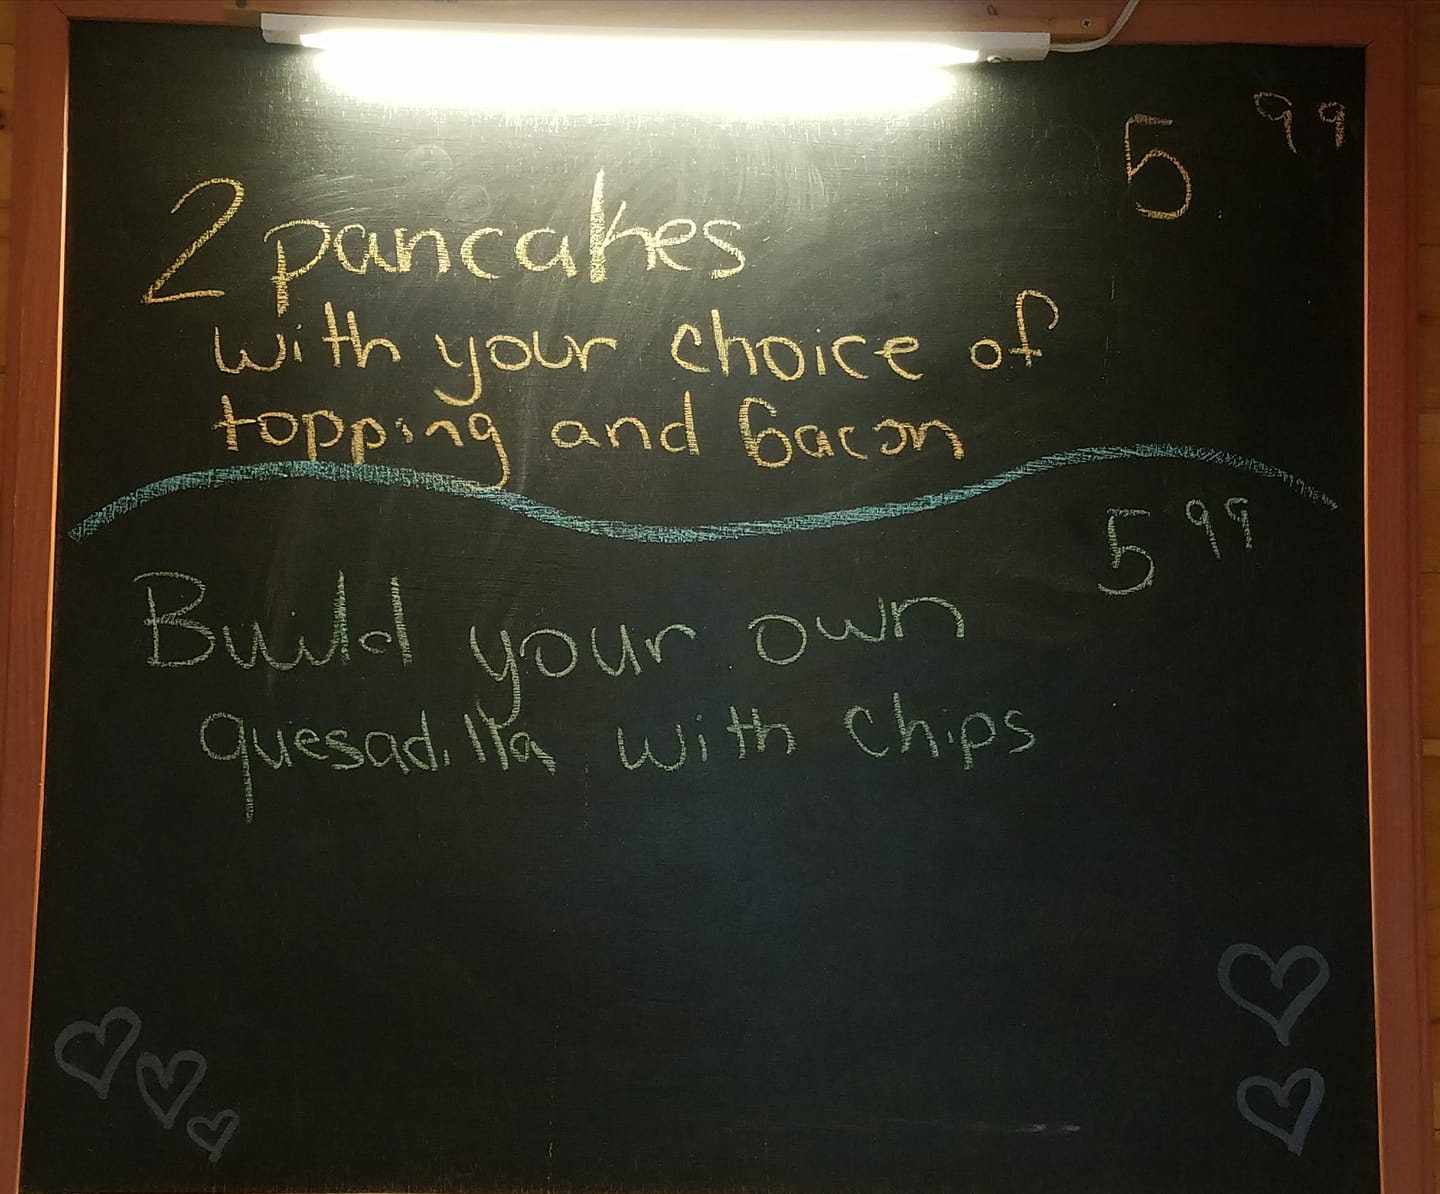 5 99
2 pancakes
with your choice of
topping and bacon
5 99
Build your own
quesadilla with chips